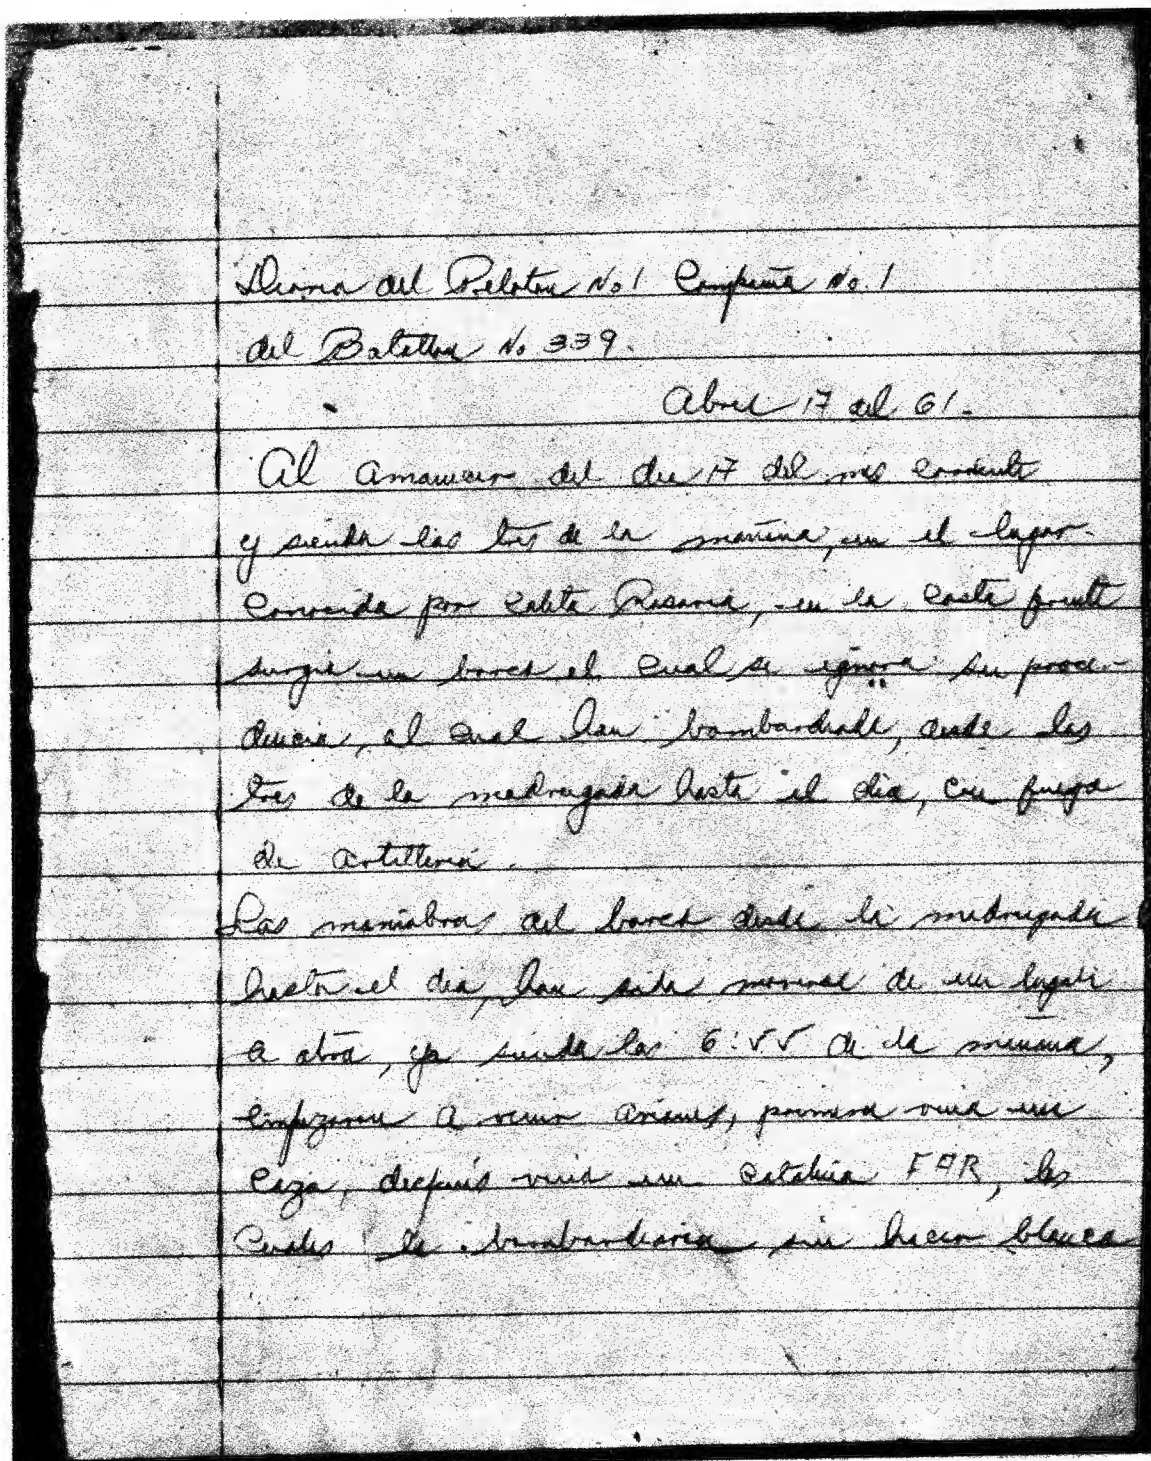 Diario del Peloton No 1 Compañia No. 1
del Batallon No 339.
Abril 17 del 61.
Al amanecer del dia 17 del mes corriente
y siendo las tres de la mañana, en el lugar
conocido por Caleta Rosario, en la costa frente
surgio un barco el cual se ignora su proce-
dencia, el cual han bombardeado, desde las
tres de la madrugada hasta el dia, con fuego
de artilleria.
Las maniobras del barco desde la madrugada
hasta el dia, han sido moverse de un lugar
a otro, ya siendo las 6:55 de la mañana,
empezaron a venir aviones, primero vino un
caza, después vino un catalina FAR, los
cuales lo bombardearon sin hacer blanco